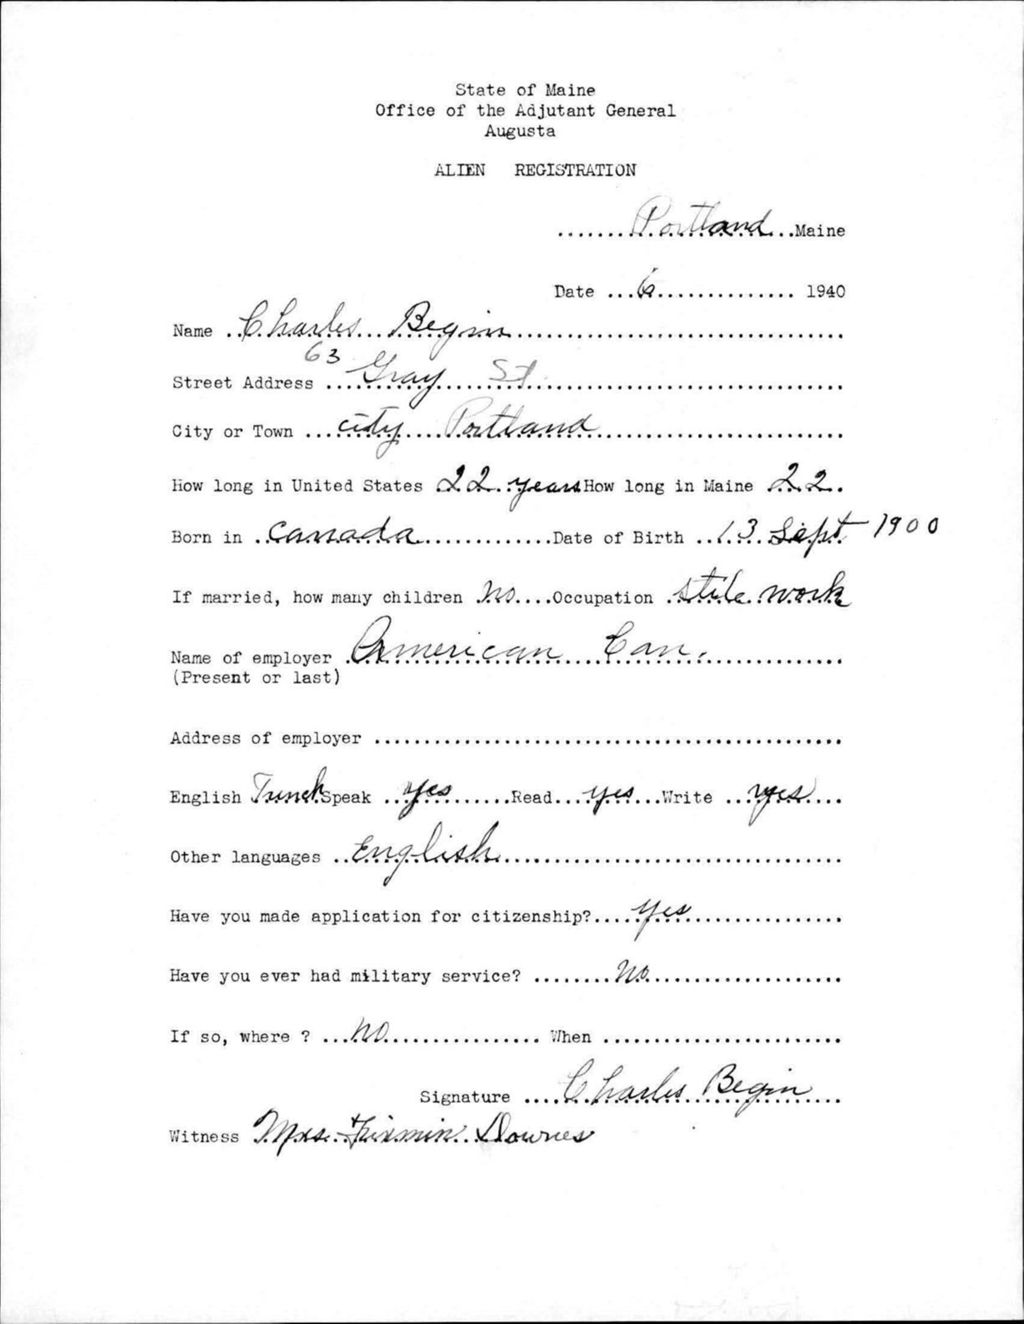 State of Maine
Office of the Adjutant General
Augusta
ALIEN REGISTRATION
.......Portland..Maine
Date ...6.............. 1940
Name ..Charles Begin
63
Street Address ...Gray St
City or Town ...city Portland
How long in United States 22 years How long in Maine 22.
Born in .Canada..............Date of Birth ..13 Sept 1900
If married, how many children .No....Occupation .stile work
Name of employer .American Can.
(Present or last)
Address of employer ..............................................
English French Speak ..yes.......Read...yes...Write ..yes....
Other languages ..English
Have you made application for citizenship?....yes
Have you ever had military service? ........no
If so, where ? ...no................ When ........................
Signature ....Charles Begin
Witness Mrs. Firmin Downes